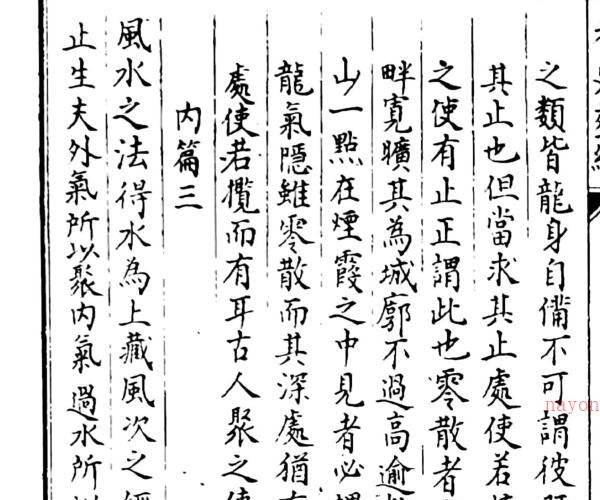 之類皆龍身自備不可謂彼
其止也但當求其止處使若
之使有止正謂此也零散者
畔寬曠其為城廓不過高逾
山一點在煙霞之中見者必
龍氣隱雖零散而其深處猶
處使若攬而有耳古人聚之使
內篇三
風水之法得水為上藏風次之經
止生夫外氣所以聚內氣過水所以
nayon